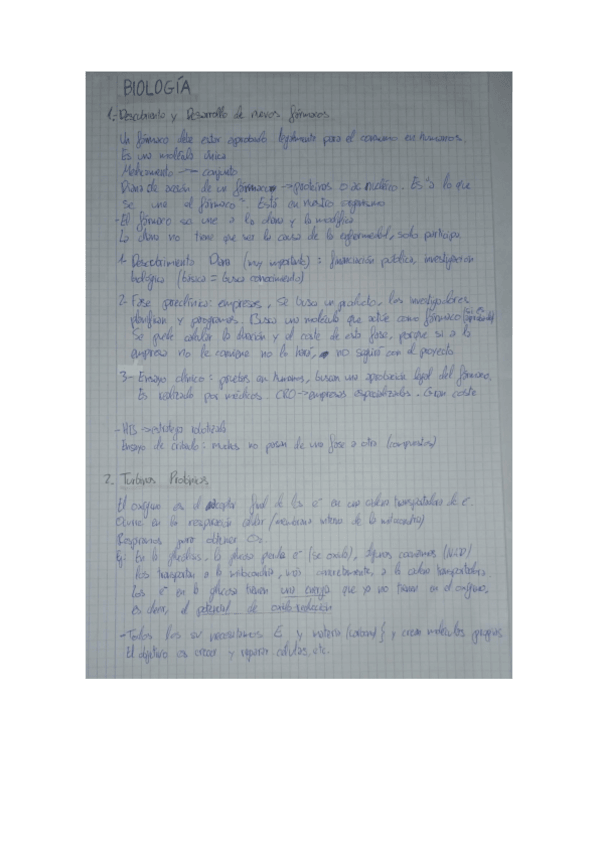 BIOLOGÍA
1.- Descubrimiento y Desarrollo de nuevos fármacos.
Un fármaco debe estar aprobado legalmente para el consumo en humanos.
Es una molécula única
Medicamento → conjunto
Diana de acción de un fármaco → proteínas o ác nucléico. Es "a lo que
se une el fármaco". Está en nuestro organismo
- El fármaco se une a la diana y la modifica
La diana no tiene que ser la causa de la enfermedad, solo participa
1- Descubrimiento Diana (muy importante): financiación pública, investigación
biológica (básica = busca conocimiento)
2- Fase preclínica: empresas, se busca un producto, los investigadores
planifican y programas. Busca una molécula que actúe como fármaco
Se puede calcular la duración y el coste de esta fase, porque si a la
empresa no le conviene no lo hará, no seguirá con el proyecto.
3- Ensayo clínico: pruebas en humanos, buscan una aprobación legal del fármaco.
Es realizado por médicos. CRO → empresas especializadas. Gran coste
- HTS → estrategia robotizada
Ensayo de cribado: muchas no pasan de una fase a otra (compuestos)
2. Turbinas Proteicas
El oxígeno es el aceptor final de los e⁻ en una cadena transportadora de e⁻.
Ocurre en la respiración celular (membrana interna de la mitocondria)
Respiramos para obtener O₂.
Ej: En la glucólisis, la glucosa pierde e⁻ (se oxida), algunas coenzimas (NAD)
los transportan a la mitocondria, más concretamente, a la cadena transportadora.
Los e⁻ en la glucosa tienen una energía que ya no tienen en el oxígeno,
es decir, el potencial de oxido reducción
- Todos los sv necesitamos E y materia (carbono) y crean moléculas propias
El objetivo es crear y reparar células, etc.